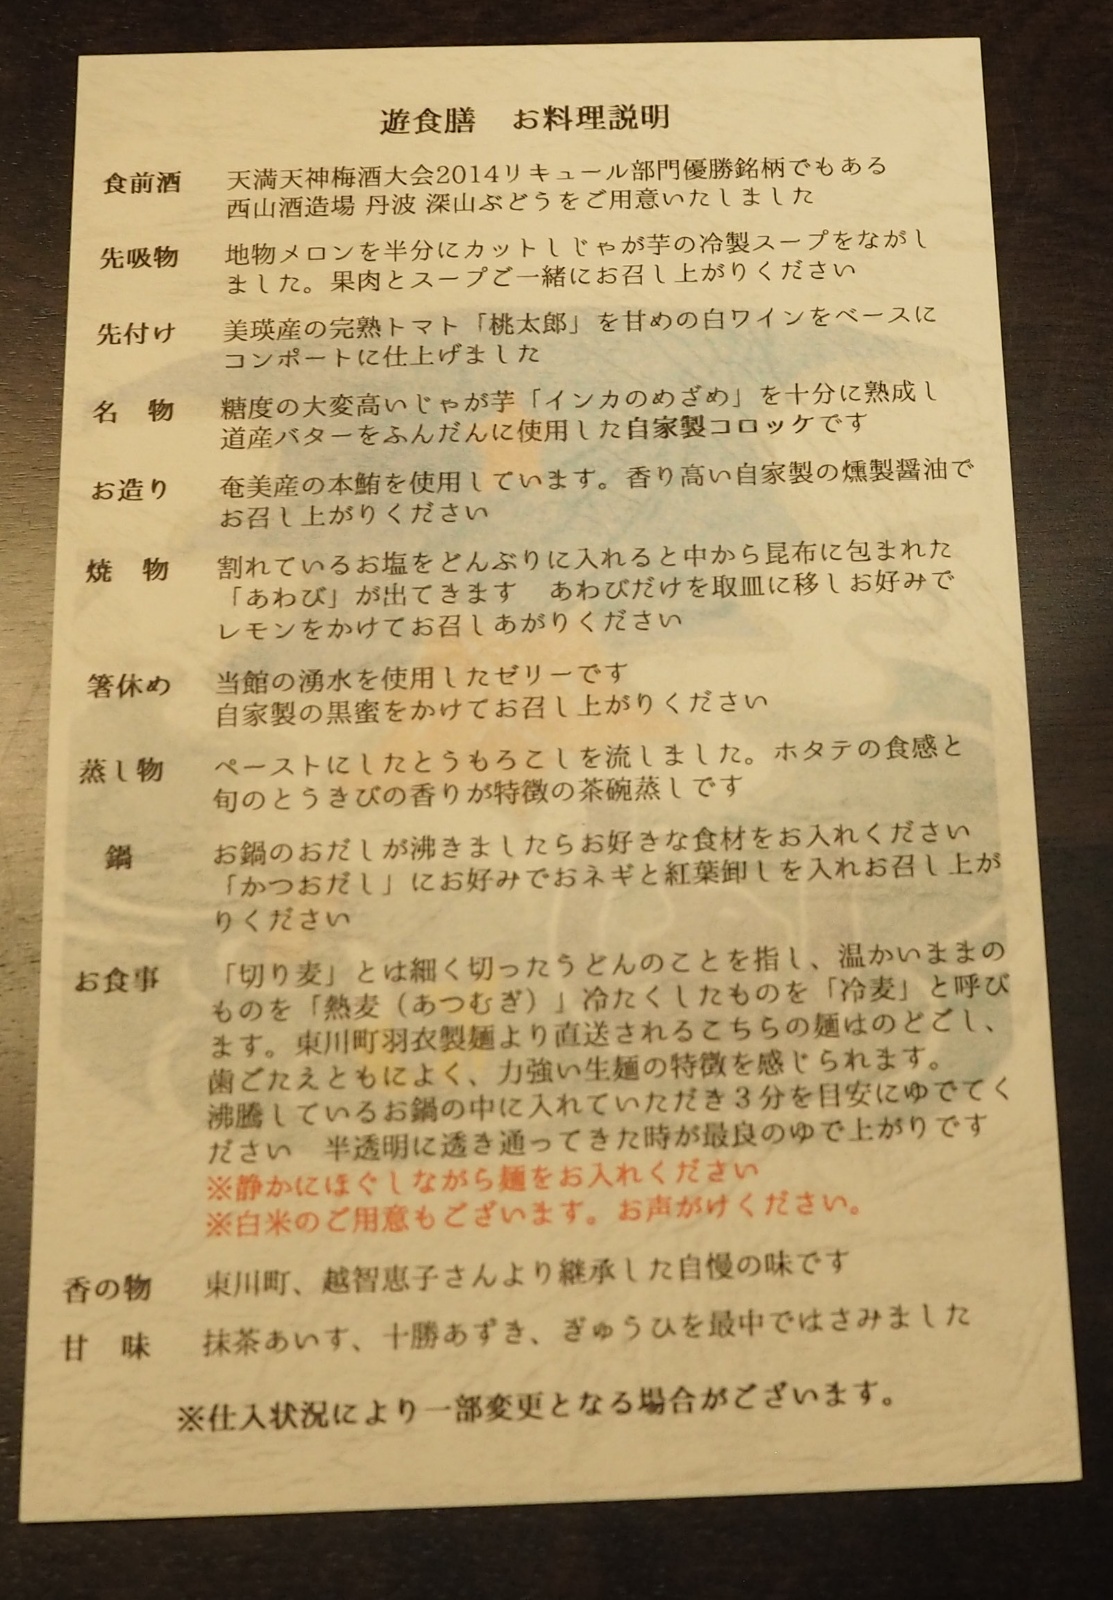 遊食膳　お料理説明
食前酒　天満天神梅酒大会2014リキュール部門優勝銘柄でもある
西山酒造場 丹波 深山ぶどうをご用意いたしました
先吸物　地物メロンを半分にカットしじゃが芋の冷製スープをながし
ました。果肉とスープご一緒にお召し上がりください
先付け　美瑛産の完熟トマト「桃太郎」を甘めの白ワインをベースに
コンポートに仕上げました
名　物　糖度の大変高いじゃが芋「インカのめざめ」を十分に熟成し
道産バターをふんだんに使用した自家製コロッケです
お造り　奄美産の本鮪を使用しています。香り高い自家製の燻製醤油で
お召し上がりください
焼　物　割れているお塩をどんぶりに入れると中から昆布に包まれた
「あわび」が出てきます　あわびだけを取皿に移しお好みで
レモンをかけてお召しあがりください
箸休め　当館の湧水を使用したゼリーです
自家製の黒蜜をかけてお召し上がりください
蒸し物　ペーストにしたとうもろこしを流しました。ホタテの食感と
旬のとうきびの香りが特徴の茶碗蒸しです
鍋　お鍋のおだしが沸きましたらお好きな食材をお入れください
「かつおだし」にお好みでおネギと紅葉卸しを入れお召し上が
りください
お食事　「切り麦」とは細く切ったうどんのことを指し、温かいままの
ものを「熱麦（あつむぎ）」冷たくしたものを「冷麦」と呼び
ます。東川町羽衣製麺より直送されるこちらの麺はのどごし、
歯ごたえともによく、力強い生麺の特徴を感じられます。
沸騰しているお鍋の中に入れていただき３分を目安にゆでてく
ださい　半透明に透き通ってきた時が最良のゆで上がりです
※静かにほぐしながら麺をお入れください
※白米のご用意もございます。お声がけください。
香の物　東川町、越智恵子さんより継承した自慢の味です
甘　味　抹茶あいす、十勝あずき、ぎゅうひを最中ではさみました
※仕入状況により一部変更となる場合がございます。